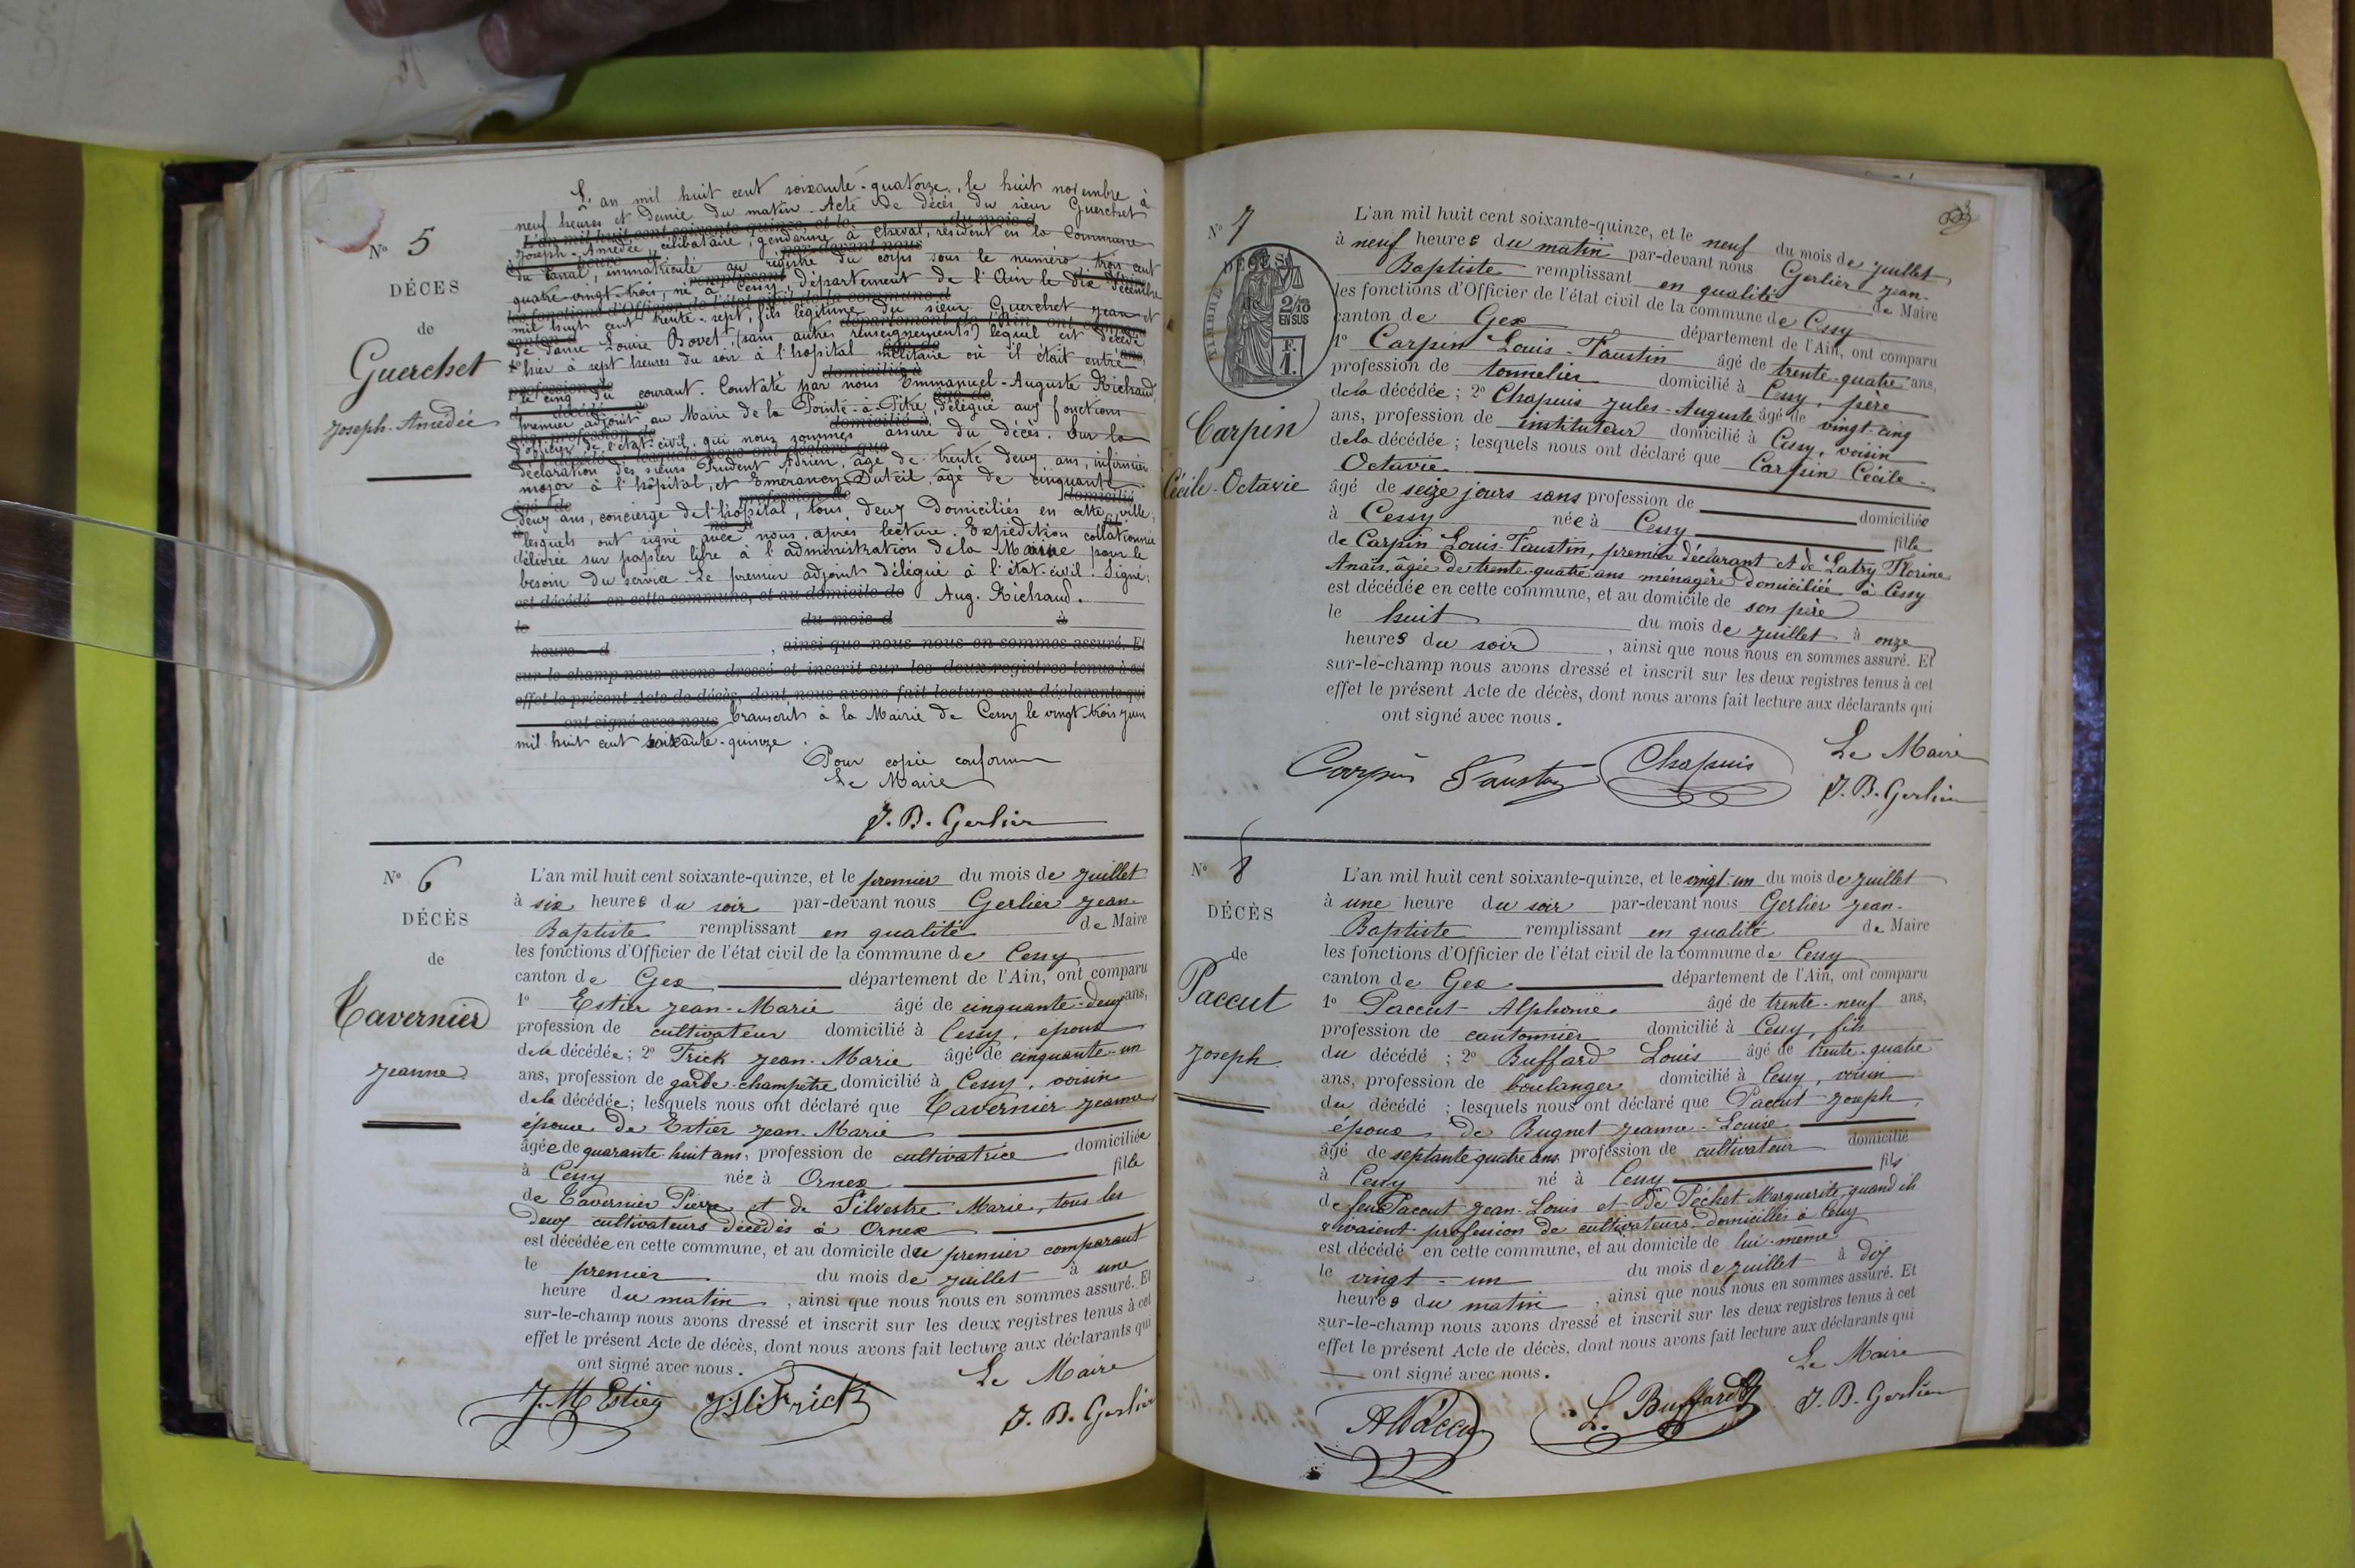 N° 5
DÉCES
de
Guerchet
Joseph-Amédée
L'an mil huit cent soixante-quatorze, le huit novembre à
neuf heures et demie du matin. Acte de décès du sieur Guerchet
Joseph-Amédée, célibataire, gendarme à cheval, résident en la Commune
du Canal, immatriculé au registre du corps sous le numéro trois cent
quatre-vingt-trois, né à Cessy, département de l'Ain le dix décembre
mil huit cent trente-sept, fils légitime du sieur Guerchet Jean et
de dame Louise Bovet, (sans autres renseignements) lequel est décédé
hier à sept heures du soir à l'hôpital militaire où il était entré
le cinq du courant. Constaté par nous Emmanuel-Auguste Richaud,
premier adjoint au Maire de la Pointe-à-Pitre, délégué aux fonctions
d'officier de l'état-civil, qui nous sommes assuré du décès. Sur la
déclaration des sieurs Prudent Adrien, âgé de trente deux ans, infirmier
major à l'hôpital, et Emerancy Duteil, âgé de cinquante
deux ans, concierge de l'hôpital, tous deux domiciliés en cette ville,
lesquels ont signé avec nous, après lecture. Expédition collationnée
délivrée sur papier libre à l'administration de la Marine pour le
besoin du service. Le premier adjoint délégué à l'état-civil. Signé:
est décédé en cette commune, et au domicile de Aug. Richaud.
le du mois d à
heure d , ainsi que nous nous en sommes assuré. Et
sur-le-champ nous avons dressé et inscrit sur les deux registres tenus à cet
effet le présent Acte de décès, dont nous avons fait lecture aux déclarants qui
ont signé avec nous Transcrit à la Mairie de Cessy le vingt-trois juin
mil huit cent soixante-quinze.
Pour copie conforme
Le Maire
J. B. Gerlier
N° 6
DÉCÈS
de
Tavernier
Jeanne
L'an mil huit cent soixante-quinze, et le premier du mois de juillet
à six heures du soir par-devant nous Gerlier Jean-
Baptiste remplissant en qualité de Maire
les fonctions d'Officier de l'état civil de la commune de Cessy
canton de Gex département de l'Ain, ont comparu
1° Estier Jean-Marie âgé de cinquante-deux ans,
profession de cultivateur domicilié à Cessy, époux
de la décédée; 2° Frick Jean-Marie âgé de cinquante-un
ans, profession de garde-champêtre domicilié à Cessy, voisin
de la décédée; lesquels nous ont déclaré que Tavernier Jeanne
épouse de Estier Jean-Marie
âgée de quarante-huit ans, profession de cultivatrice domiciliée
à Cessy née à Ornex fille
de Tavernier Pierre et de Silvestre Marie, tous les
deux cultivateurs décédés à Ornex
est décédée en cette commune, et au domicile du premier comparant
le premier du mois de juillet à une
heure du matin , ainsi que nous nous en sommes assuré. Et
sur-le-champ nous avons dressé et inscrit sur les deux registres tenus à cet
effet le présent Acte de décès, dont nous avons fait lecture aux déclarants qui
ont signé avec nous.
Le Maire
J. M Estier J M Frick J. B. Gerlier
N° 7
DÉCÈS
TIMBRE
2/10
EN SUS
F.
1.
Carpin
Cécile-Octavie
L'an mil huit cent soixante-quinze, et le neuf du mois de juillet
à neuf heures du matin par-devant nous Gerlier Jean-
Baptiste remplissant en qualité de Maire
les fonctions d'Officier de l'état civil de la commune de Cessy
canton de Gex département de l'Ain, ont comparu
1° Carpin Louis-Faustin âgé de trente-quatre ans,
profession de tonnelier domicilié à Cessy, père
de la décédée; 2° Chapuis Jules-Auguste âgé de vingt-cinq
ans, profession de instituteur domicilié à Cessy, voisin
de la décédée; lesquels nous ont déclaré que Carpin Cécile-
Octavie
âgé de seize jours sans profession de domiciliée
à Cessy née à Cessy fille
de Carpin Louis-Faustin, premier déclarant et de Latry Florine
Anaïs, âgée de trente-quatre ans ménagère domiciliée à Cessy
est décédée en cette commune, et au domicile de son père
le huit du mois de juillet à onze
heures du soir , ainsi que nous nous en sommes assuré. Et
sur-le-champ nous avons dressé et inscrit sur les deux registres tenus à cet
effet le présent Acte de décès, dont nous avons fait lecture aux déclarants qui
ont signé avec nous.
Le Maire
Carpin Faustin Chapuis J. B. Gerlier
N° 8
DÉCÈS
de
Paccut
Joseph
L'an mil huit cent soixante-quinze, et le vingt-un du mois de juillet
à une heure du soir par-devant nous Gerlier Jean-
Baptiste remplissant en qualité de Maire
les fonctions d'Officier de l'état civil de la commune de Cessy
canton de Gex département de l'Ain, ont comparu
1° Paccut Alphonse âgé de trente-neuf ans,
profession de cantonnier domicilié à Cessy, fils
du décédé ; 2° Buffard Louis âgé de trente-quatre
ans, profession de boulanger domicilié à Cessy, voisin
du décédé ; lesquels nous ont déclaré que Paccut Joseph,
époux de Bugnet Jeanne-Louise
âgé de septante quatre ans profession de cultivateur domicilié
à Cessy né à Cessy fils
de feu Paccut Jean-Louis et de Péchet Marguerite, quand ils
vivaient profession de cultivateurs domiciliés à Cessy
est décédé en cette commune, et au domicile de lui-même
le vingt-un du mois de juillet à dix
heures du matin , ainsi que nous nous en sommes assuré. Et
sur-le-champ nous avons dressé et inscrit sur les deux registres tenus à cet
effet le présent Acte de décès, dont nous avons fait lecture aux déclarants qui
ont signé avec nous.
Le Maire
A Paccut L. Buffard J. B. Gerlier